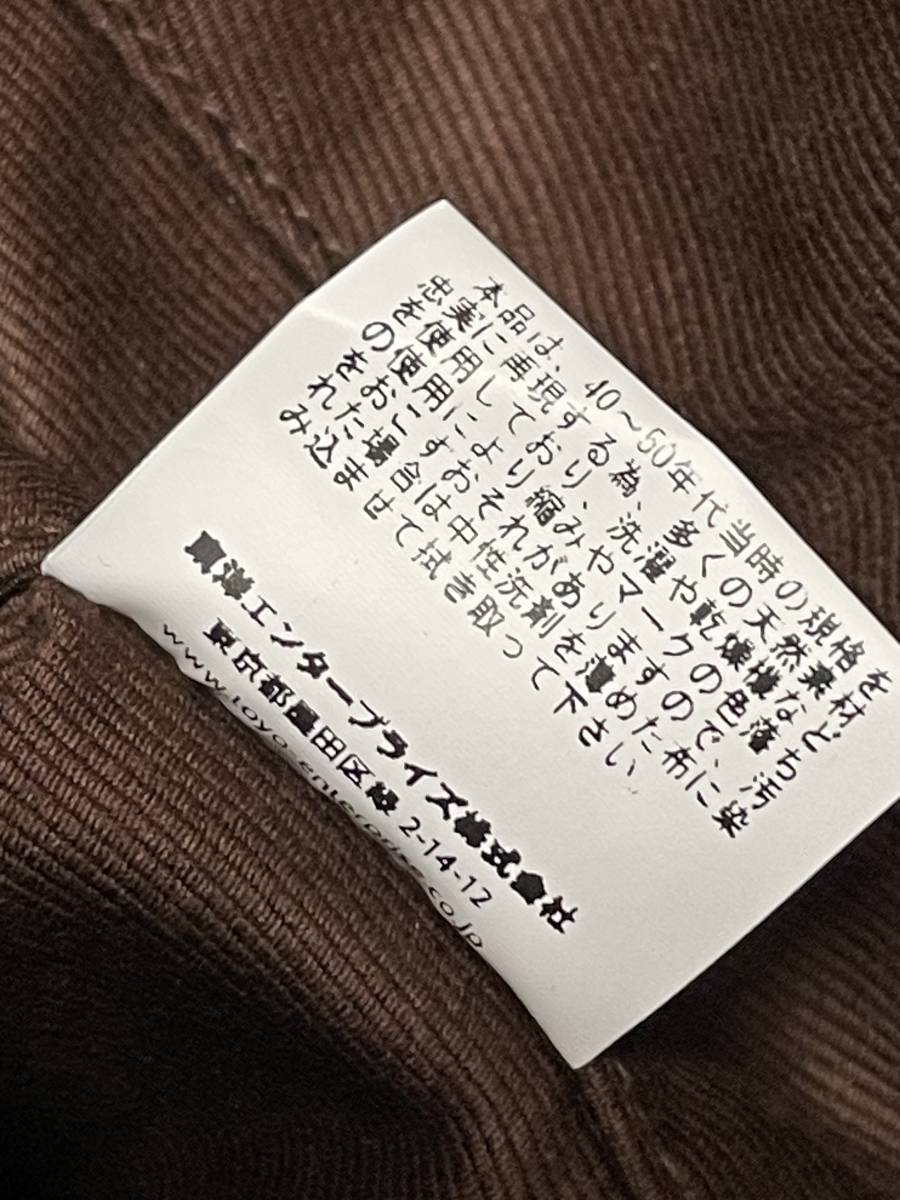 本品は、40～50年代当時の規格を
忠実に再現する為、多くの天然素材
を使用しており、洗濯や乾燥機など
の使用により縮みやマークの色落ち
をおこすおそれがありますので、汚
れた場合は中性洗剤を薄めた布に染
み込ませて拭き取って下さい
東洋エンタープライズ株式会社
東京都墨田区緑 2-14-12
www.toyo-enterprise.co.jp